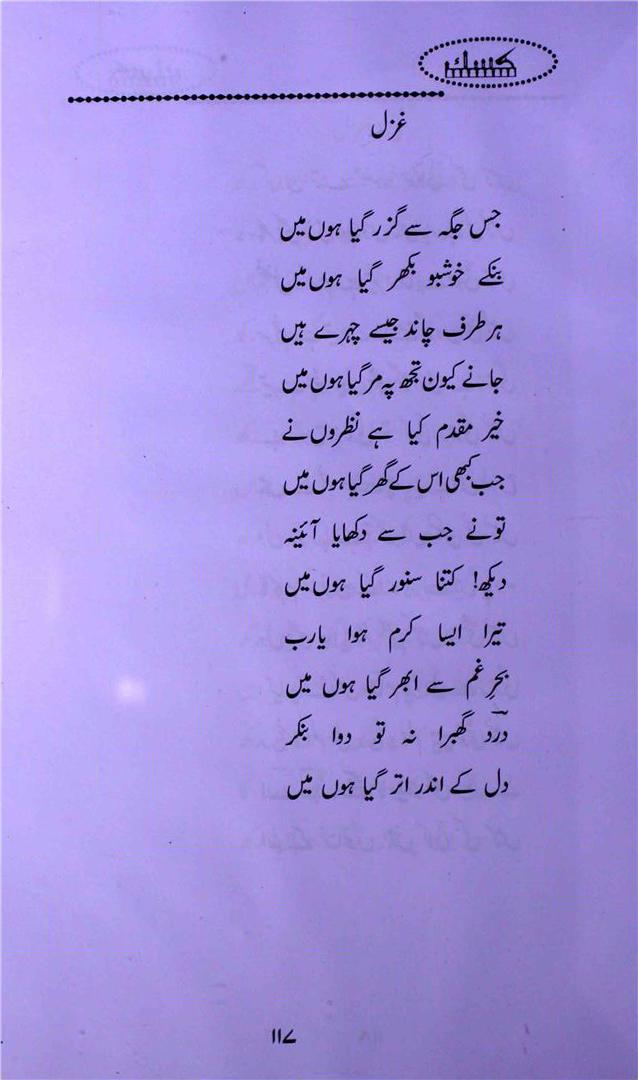 کسک
غزل
جس جگہ سے گزر گیا ہوں میں
بنکے خوشبو بکھر گیا ہوں میں
ہر طرف چاند جیسے چہرے ہیں
جانے کیون تجھ پہ مر گیا ہوں میں
خیر مقدم کیا ہے نظروں نے
جب کبھی اس کے گھر گیا ہوں میں
تونے جب سے دکھایا آئینہ
دیکھ! کتنا سنور گیا ہوں میں
تیرا ایسا کرم ہوا یارب
بحرِ غم سے ابھر گیا ہوں میں
دردؔ گھبرا نہ تو دوا بنکر
دل کے اندر اتر گیا ہوں میں
۱۱۷